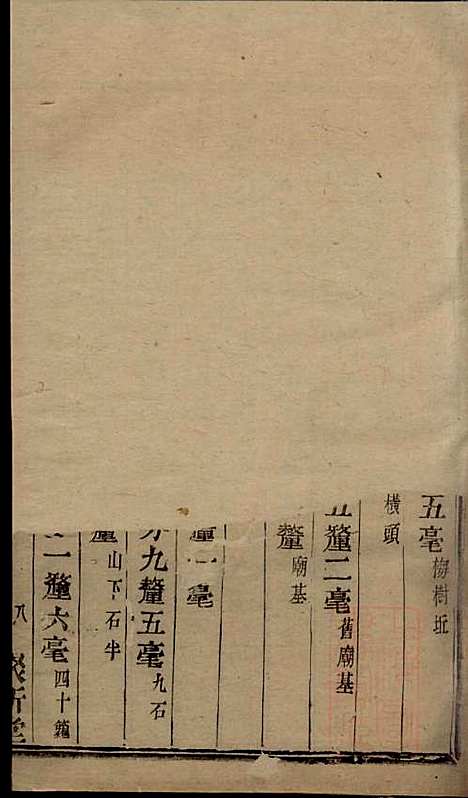 五毫 梅樹坵
橫頭
五釐二毫 舊廟基
釐 廟基
釐一毫
九釐五毫 九石
山下石半
一釐六毫 四十籮
八